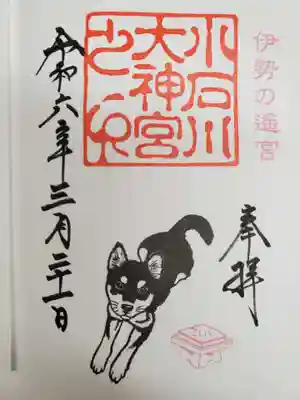 伊勢の遙宮
奉拝
小石川
大神宮
之印
令和六年三月二十一日